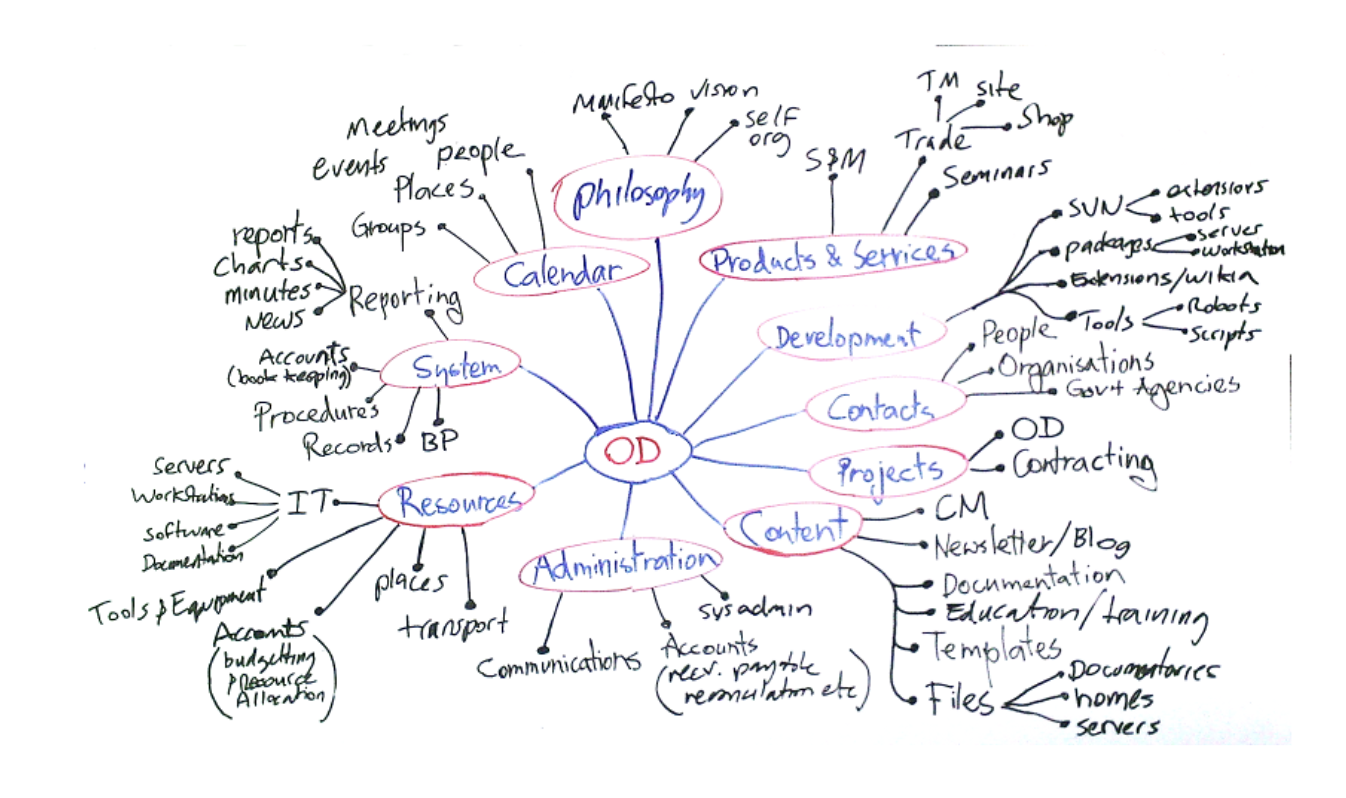 OD
Philosophy
Manifesto
vision
self
org
Products & Services
S&M
Trade
TM
site
Shop
Seminars
Development
SVN
extensions
tools
packages
server
workstation
Extensions/wikia
Tools
Robots
Scripts
Contacts
People
Organisations
Govt Agencies
Projects
OD
Contracting
Content
CM
Newsletter/Blog
Documentation
Education/training
Templates
Files
Documentaries
homes
servers
Administration
sysadmin
Accounts
(recv. payable
etc)
Communications
Resources
transport
places
Accounts
(budgetting
& resource
Allocation)
Tools & Equipment
IT
Servers
Workstations
Software
Documentation
System
BP
Records
Procedures
Accounts
(book keeping)
Reporting
reports
Charts
minutes
News
Calendar
Groups
Places
people
events
Meetings